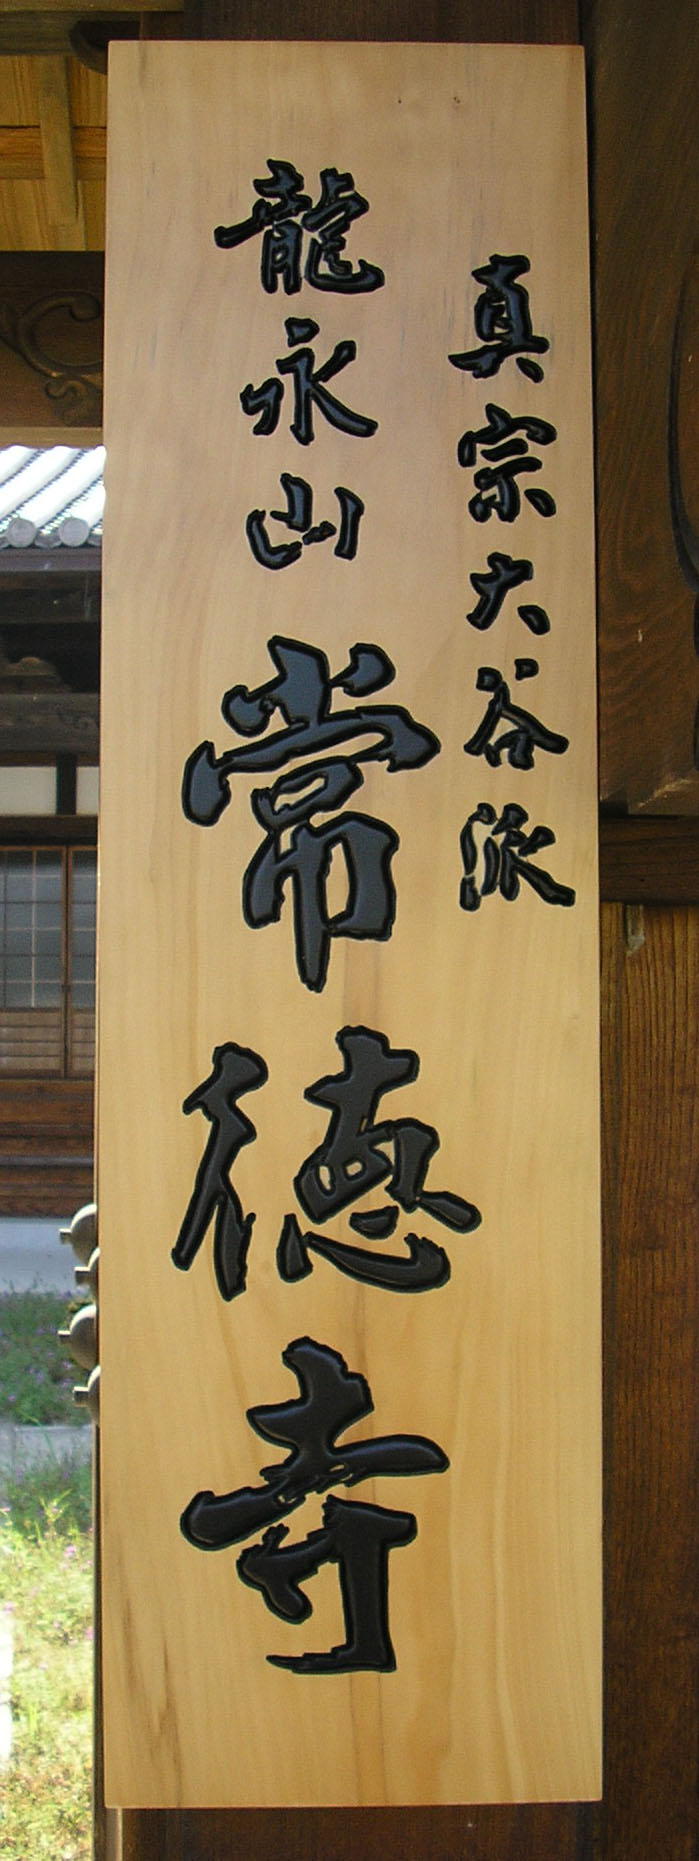 真宗大谷派
龍永山常徳寺